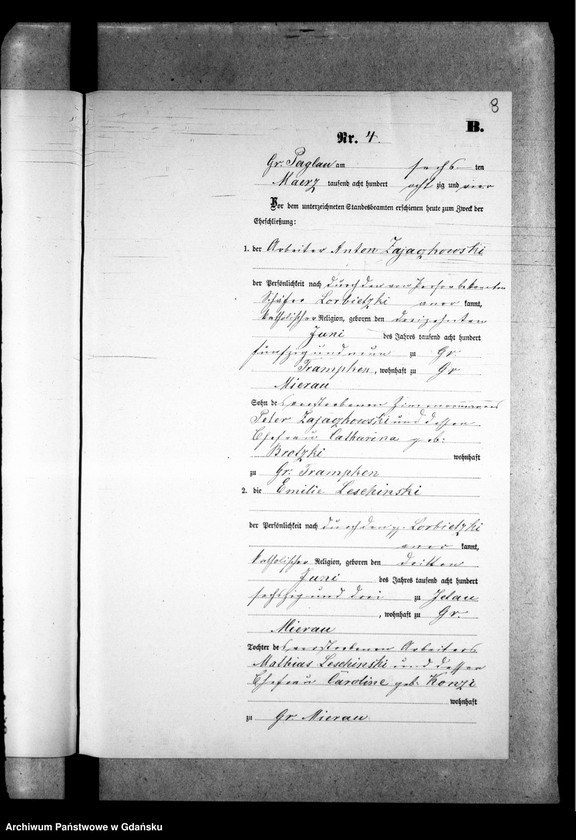 8
B.
Nr. 4.
Gr. Paglau am sechs ten
Maerz tausend acht hundert acht zig und vier
Vor dem unterzeichneten Standesbeamten erschienen heute zum Zweck der
Eheschließung:
1. der Arbeiter Anton Zajaczkowski
der Persönlichkeit nach durch den von Person bekannten
Schäfer Lorbietzki aner kannt,
katholischer Religion, geboren den dreizehnten
Juni des Jahres tausend acht hundert
fünfzig und neun zu Gr.
Tramphen, wohnhaft zu Gr
Mierau
Sohn des verstorbenen Zimmermanns
Peter Zajaczkowski und dessen
Ehefrau Catharina geb:
Brotzki wohnhaft
zu Gr. Tramphen
2. die Emilie Leschinski
der Persönlichkeit nach durch den p. Lorbietzki
aner kannt,
katholischer Religion, geboren den dritten
Juni des Jahres tausend acht hundert
sechzig und drei zu Jetau
, wohnhaft zu Gr.
Mierau
Tochter des verstorbenen Arbeiters
Mathias Leschinski und dessen
Ehefrau Caroline geb. Konzi
wohnhaft
zu Gr Mierau
Archiwum Państwowe w Gdańsku